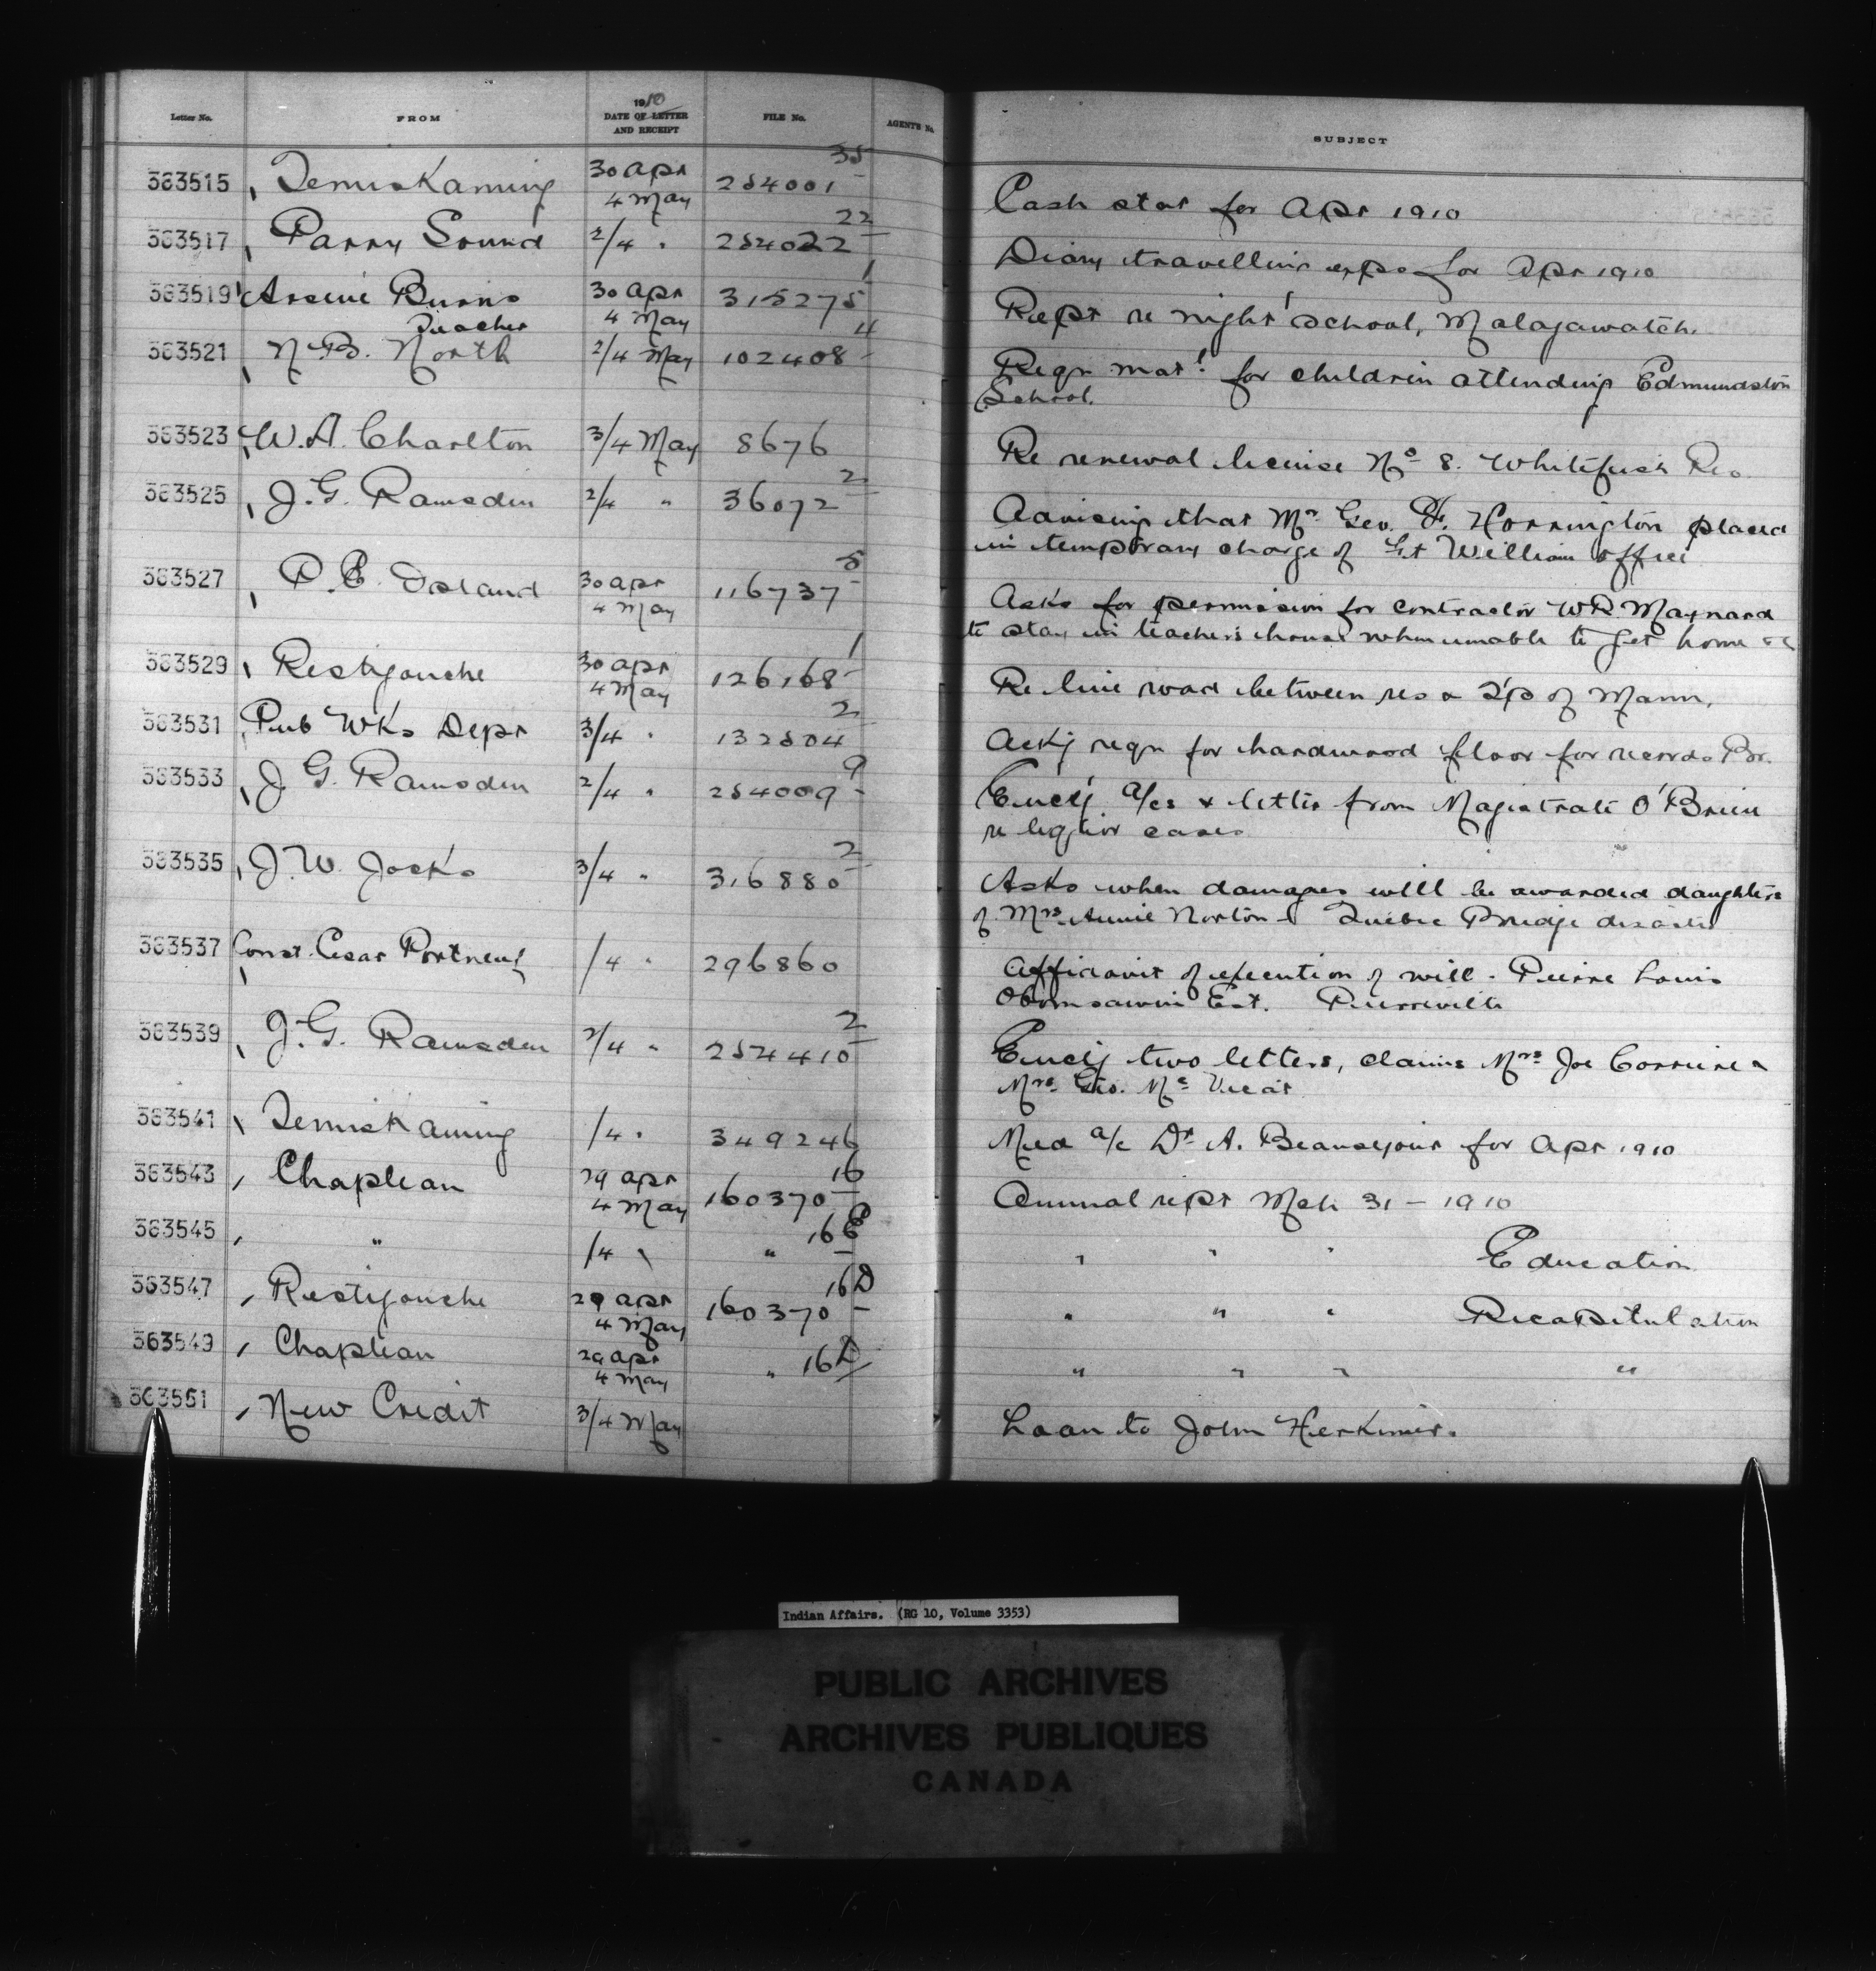 Letter No. FROM 1910 DATE OF LETTER AND RECEIPT FILE No. AGENTS No. SUBJECT
363515 Temiskaming 30 Apr 4 May 254001 35 Cash stat for Apr 1910
363517 Parry Sound 2/4 " 254022 22 Diary travelling exps for Apr 1910
363519 Arseni Burns Teacher 30 Apr 4 May 315275 1 Rept re night school, Malagawatch.
363521 N.B. North 2/4 May 102408 4 Reqn matl for children attending Edmundston
School.
363523 W.A. Charlton 3/4 May 8676 Re renewal license No 8. Whitefish Res.
363525 J.G. Ramsden 2/4 " 36072 2 Advising that Mr Geo. H. Horrington placed
in temporary charge of Ft William office
363527 30 Apr 4 May 116737 5 Asks for permission for contractor W R Maynard
to stay in teacher's house when unable to get home &c
363529 Restigouche 30 Apr 4 May 126168 1 Re line road between res & T'p of Mann.
363531 Pub Wks Dept 3/4 " 132504 2 Ackg reqn for hardwood floor for records Br.
363533 J G. Ramsden 2/4 " 254009 9 Enclg a/cs & letter from Magistrate O'Brien
re liquor cases
363535 J.W. Jocks 3/4 " 316880 2 Asks when damages will be awarded daughters
of Mrs Annie Norton - Quebec Bridge disaster
363537 Const. Cesar Portneuf /4 " 296860 Affidavit of execution of will - Pierre Louis
Obomsawin Est. Pierreville
363539 J.G. Ramsden 2/4 " 254410 2 Enclg two letters, claims Mrs Joe Corriere &
Mrs. Geo. Mc Vicar
363541 Temiskaming /4 " 349246 Med a/c Dr A. Beausejour for Apr 1910
363543 Chapleau 29 Apr 4 May 160370 16 Annual rept Mch 31 - 1910
363545 " /4 " " 16E " " " Education
363547 Restigouche 29 Apr 4 May 160370 16D " " " Recapitulation
363549 Chapleau 29 Apr 4 May " 16D " " " "
363551 New Credit 3/4 May Loan to John Herkimer.
Indian Affairs. (RG 10, Volume 3353)
PUBLIC ARCHIVES
ARCHIVES PUBLIQUES
CANADA